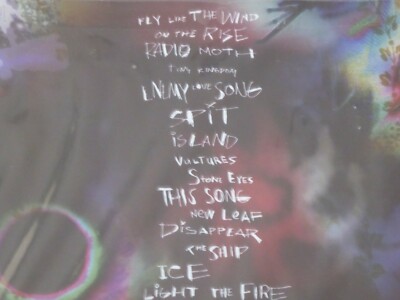 FLY LIKE THE WIND
ON THE RISE
RADIO MOTH
TINY KINGDOM
ENEMY LOVE SONG
SPIT
iSLAND
VULTURES
STONE EYES
THIS SONG
NEW LEAF
DiSAPPEAR
THE SHIP
ICE
LiGHT THE FIRE